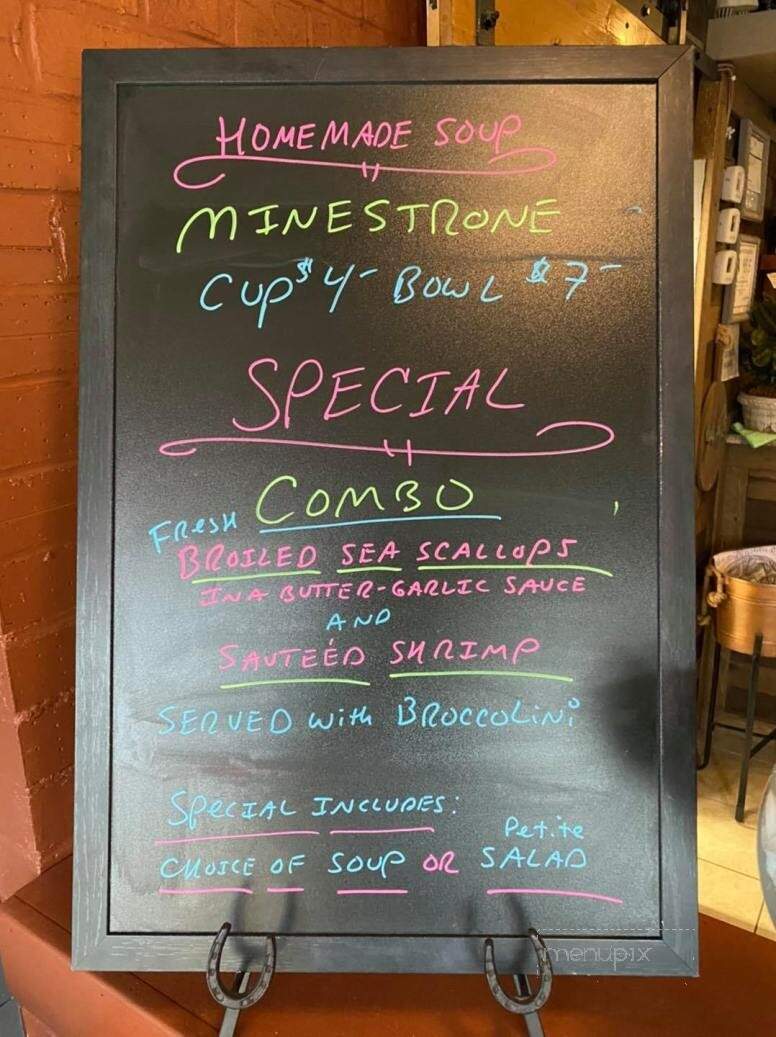 HOMEMADE SOUP
MINESTRONE
CUP $4- BOWL $7-
SPECIAL
COMBO
FRESH
BROILED SEA SCALLOPS
IN A BUTTER-GARLIC SAUCE
AND
SAUTEÉD SHRIMP
SERVED with BROCCOLINi
SPECIAL INCLUDES:
CHOICE OF SOUP OR Petite SALAD
menupix